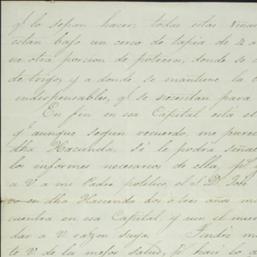 qe. lo sepan hacer, todas estas viñas
estan bajo un cerco de tapia de 2 a
no otra porcion de potreros, donde se
de largo, y a donde se mantiene la
indispensables, qe. se necesitan para
En fin en esa Capital esta el
y aunque segun recuerdo, me parece
dha Hacienda. Se le podra señalar
los informes necesarios de ella, pr. qe
a V. a mi Padre politico, el Sr. D. José
en dha Hacienda dos o tres años
cuentra en esa Capital, y aun el
dar a V. razon suya.
te V. de la mejor salud,